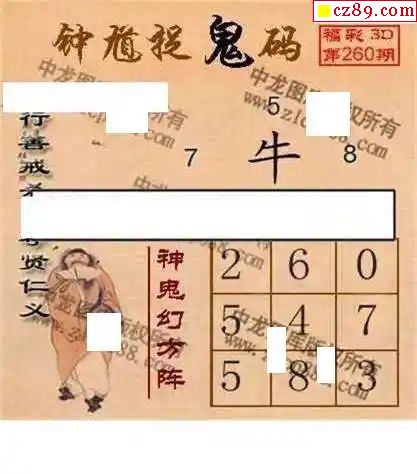 cz89.com
钟馗捉鬼码
福彩3D
第260期
5
7
牛
8
行善戒
贤仁义
神鬼幻方阵
2 6 0
5 4 7
5 8 3
中龙图库版权所有